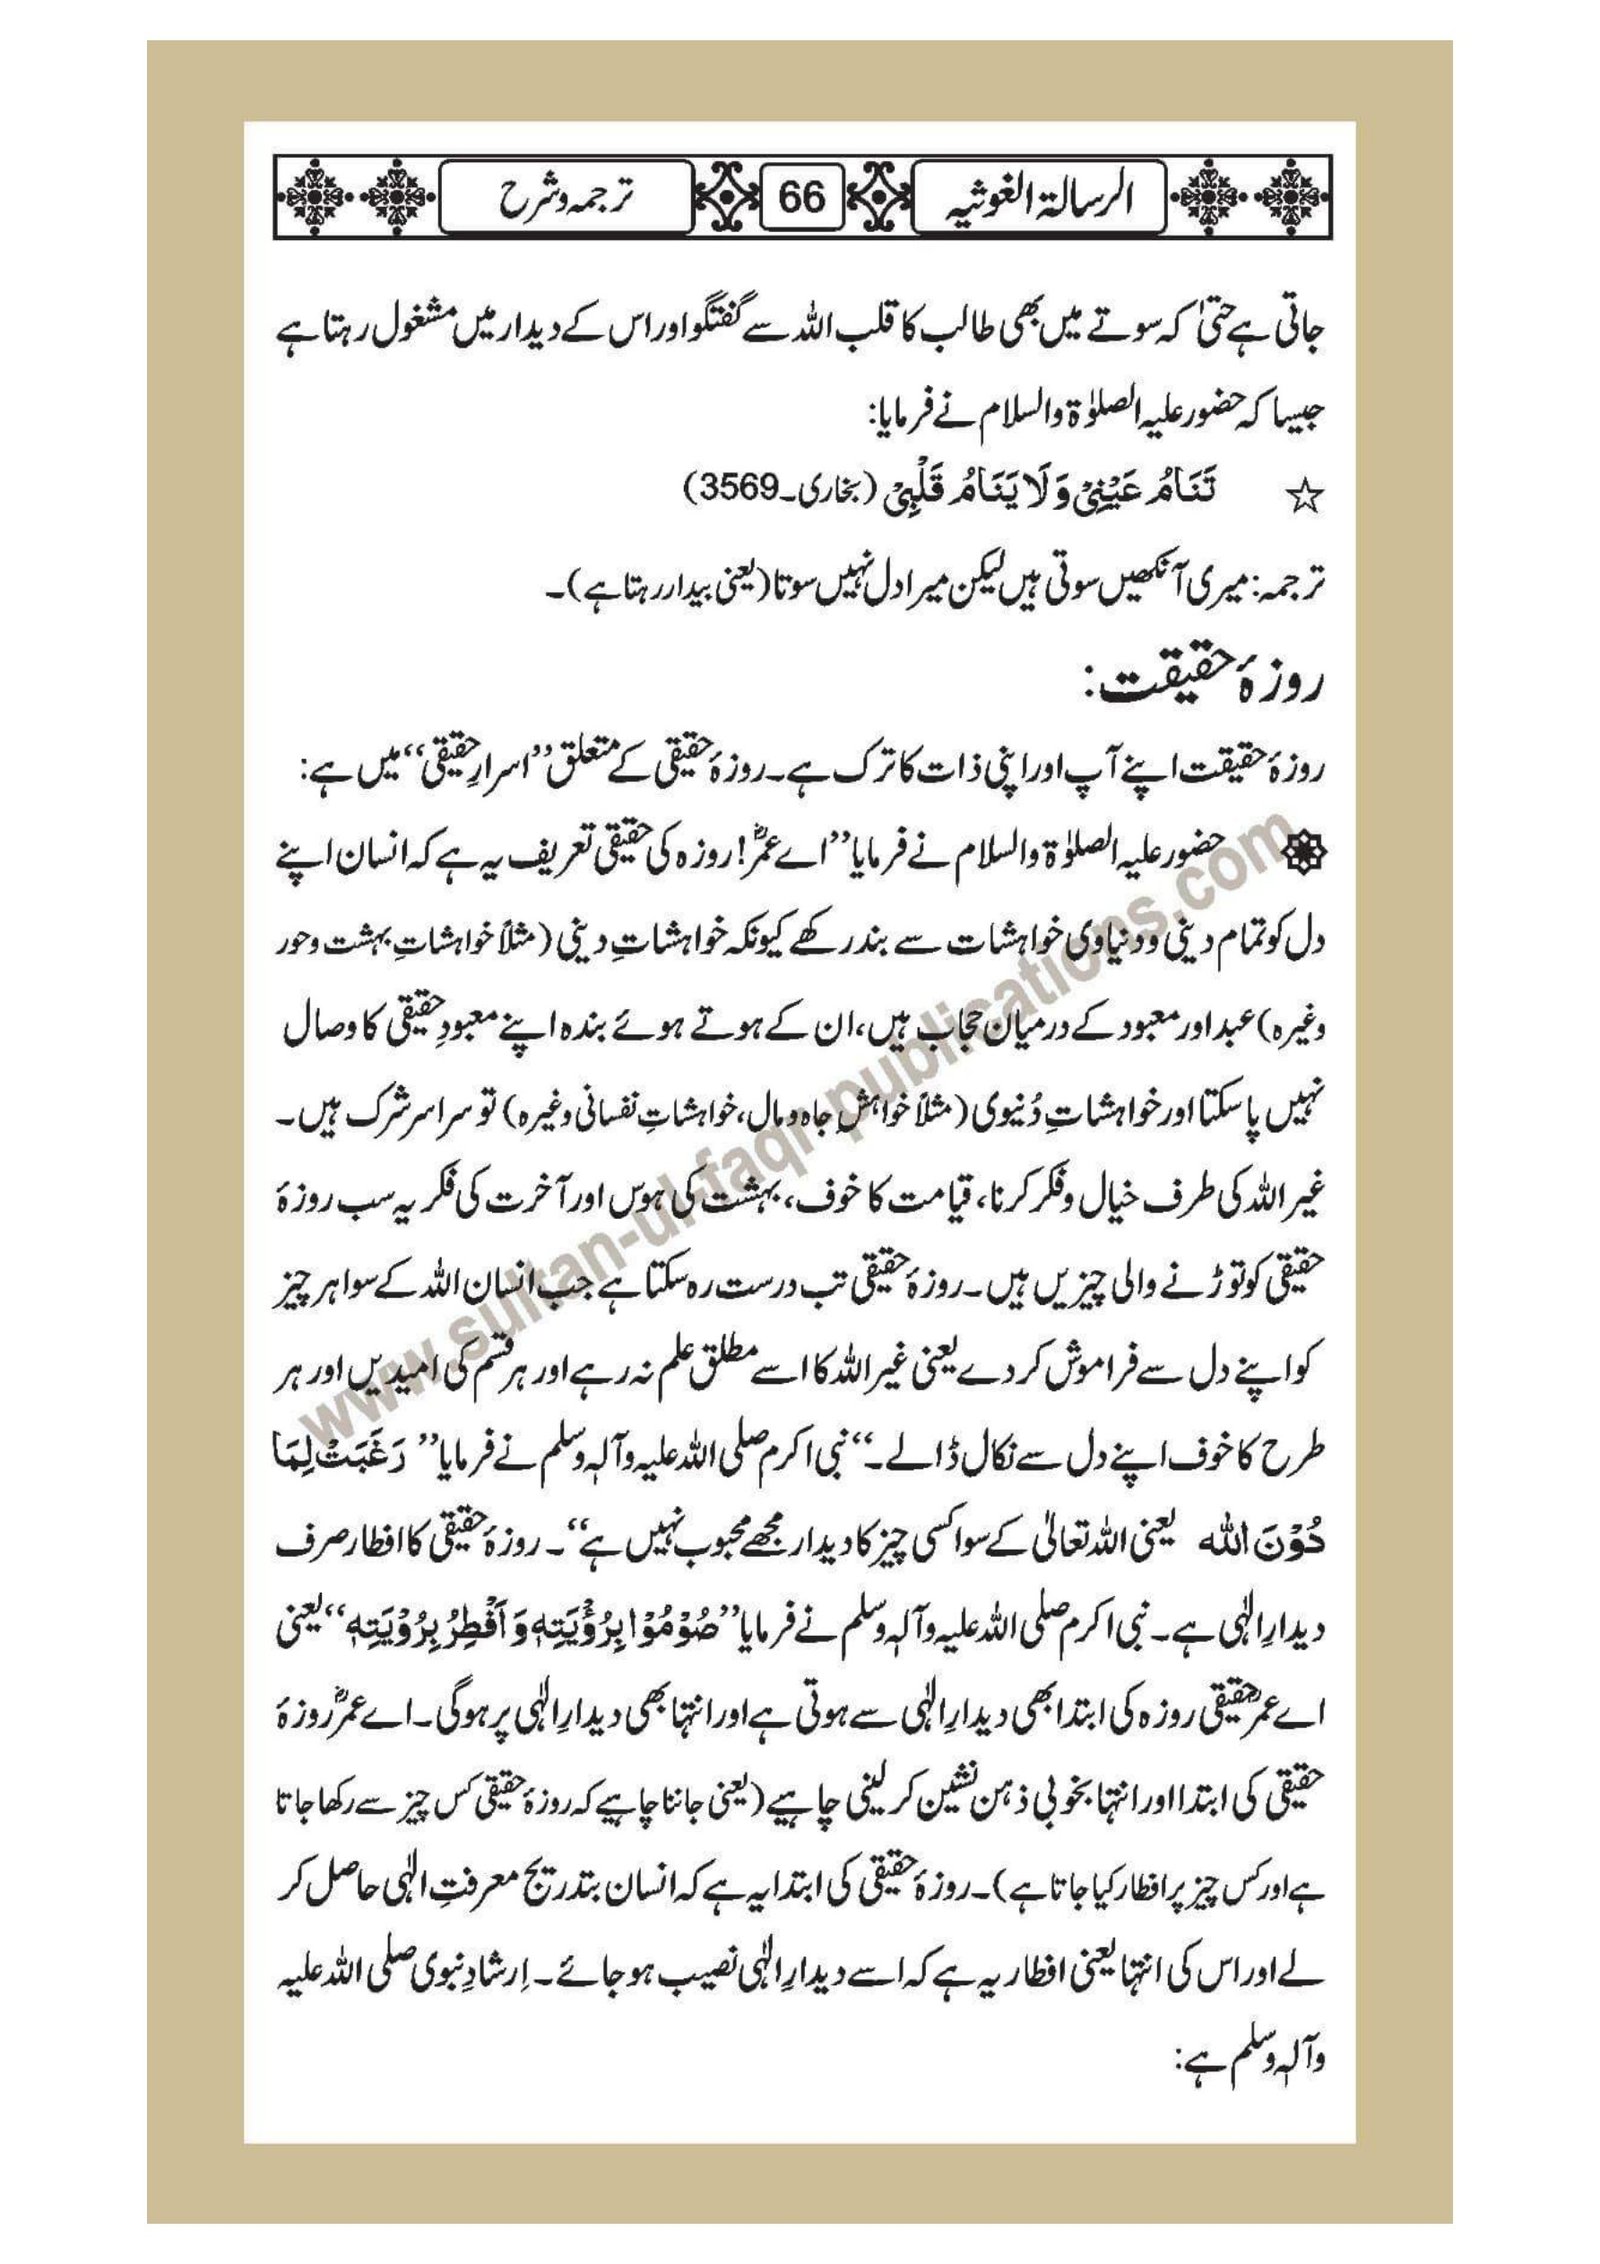 الرسالۃ الغوثیہ 66 ترجمہ و شرح
جاتی ہے حتیٰ کہ سوتے میں بھی طالب کا قلب اللہ سے گفتگو اور اس کے دیدار میں مشغول رہتا ہے
جیسا کہ حضور علیہ الصلوٰۃ والسلام نے فرمایا:
☆ تَنَامُ عَیْنِیْ وَلَا یَنَامُ قَلْبِیْ (بخاری۔3569)
ترجمہ: میری آنکھیں سوتی ہیں لیکن میرا دل نہیں سوتا (یعنی بیدار رہتا ہے)۔
روزۂ حقیقت:
روزۂ حقیقت اپنے آپ اور اپنی ذات کا ترک ہے۔ روزۂ حقیقی کے متعلق ”اسرارِ حقیقی“ میں ہے:
حضور علیہ الصلوٰۃ والسلام نے فرمایا ”اے عمرؓ! روزہ کی حقیقی تعریف یہ ہے کہ انسان اپنے
دل کو تمام دینی و دنیاوی خواہشات سے بند رکھے کیونکہ خواہشاتِ دینی (مثلاً خواہشاتِ بہشت و حور
وغیرہ) عبد اور معبود کے درمیان حجاب ہیں، ان کے ہوتے ہوئے بندہ اپنے معبودِ حقیقی کا وصال
نہیں پا سکتا اور خواہشاتِ دُنیوی (مثلاً خواہشِ جاہ و مال، خواہشاتِ نفسانی وغیرہ) تو سراسر شرک ہیں۔
غیر اللہ کی طرف خیال و فکر کرنا، قیامت کا خوف، بہشت کی ہوس اور آخرت کی فکر یہ سب روزۂ
حقیقی کو توڑنے والی چیزیں ہیں۔ روزۂ حقیقی تب درست رہ سکتا ہے جب انسان اللہ کے سوا ہر چیز
کو اپنے دل سے فراموش کر دے یعنی غیر اللہ کا اسے مطلق علم نہ رہے اور ہر قسم کی امیدیں اور ہر
طرح کا خوف اپنے دل سے نکال ڈالے۔“ نبی اکرم صلی اللہ علیہ وآلہٖ وسلم نے فرمایا ”رَغَبَتْ لِمَا
دُوْنَ اللہ یعنی اللہ تعالیٰ کے سوا کسی چیز کا دیدار مجھے محبوب نہیں ہے“۔ روزۂ حقیقی کا افطار صرف
دیدارِ الٰہی ہے۔ نبی اکرم صلی اللہ علیہ وآلہٖ وسلم نے فرمایا ”صُوْمُوْا بِرُؤْیَتِہٖ وَ اَفْطِرُ بِرُوْیَتِہٖ“ یعنی
اے عمرؓ حقیقی روزہ کی ابتدا بھی دیدارِ الٰہی سے ہوتی ہے اور انتہا بھی دیدارِ الٰہی پر ہوگی۔ اے عمرؓ روزۂ
حقیقی کی ابتدا اور انتہا بخوبی ذہن نشین کر لینی چاہیے (یعنی جاننا چاہیے کہ روزۂ حقیقی کس چیز سے رکھا جاتا
ہے اور کس چیز پر افطار کیا جاتا ہے)۔ روزۂ حقیقی کی ابتدا یہ ہے کہ انسان بتدریج معرفتِ الٰہی حاصل کر
لے اور اس کی انتہا یعنی افطار یہ ہے کہ اسے دیدارِ الٰہی نصیب ہو جائے۔ اِرشادِ نبوی صلی اللہ علیہ
وآلہٖ وسلم ہے:
www.sultan-ul-faqr-publications.com